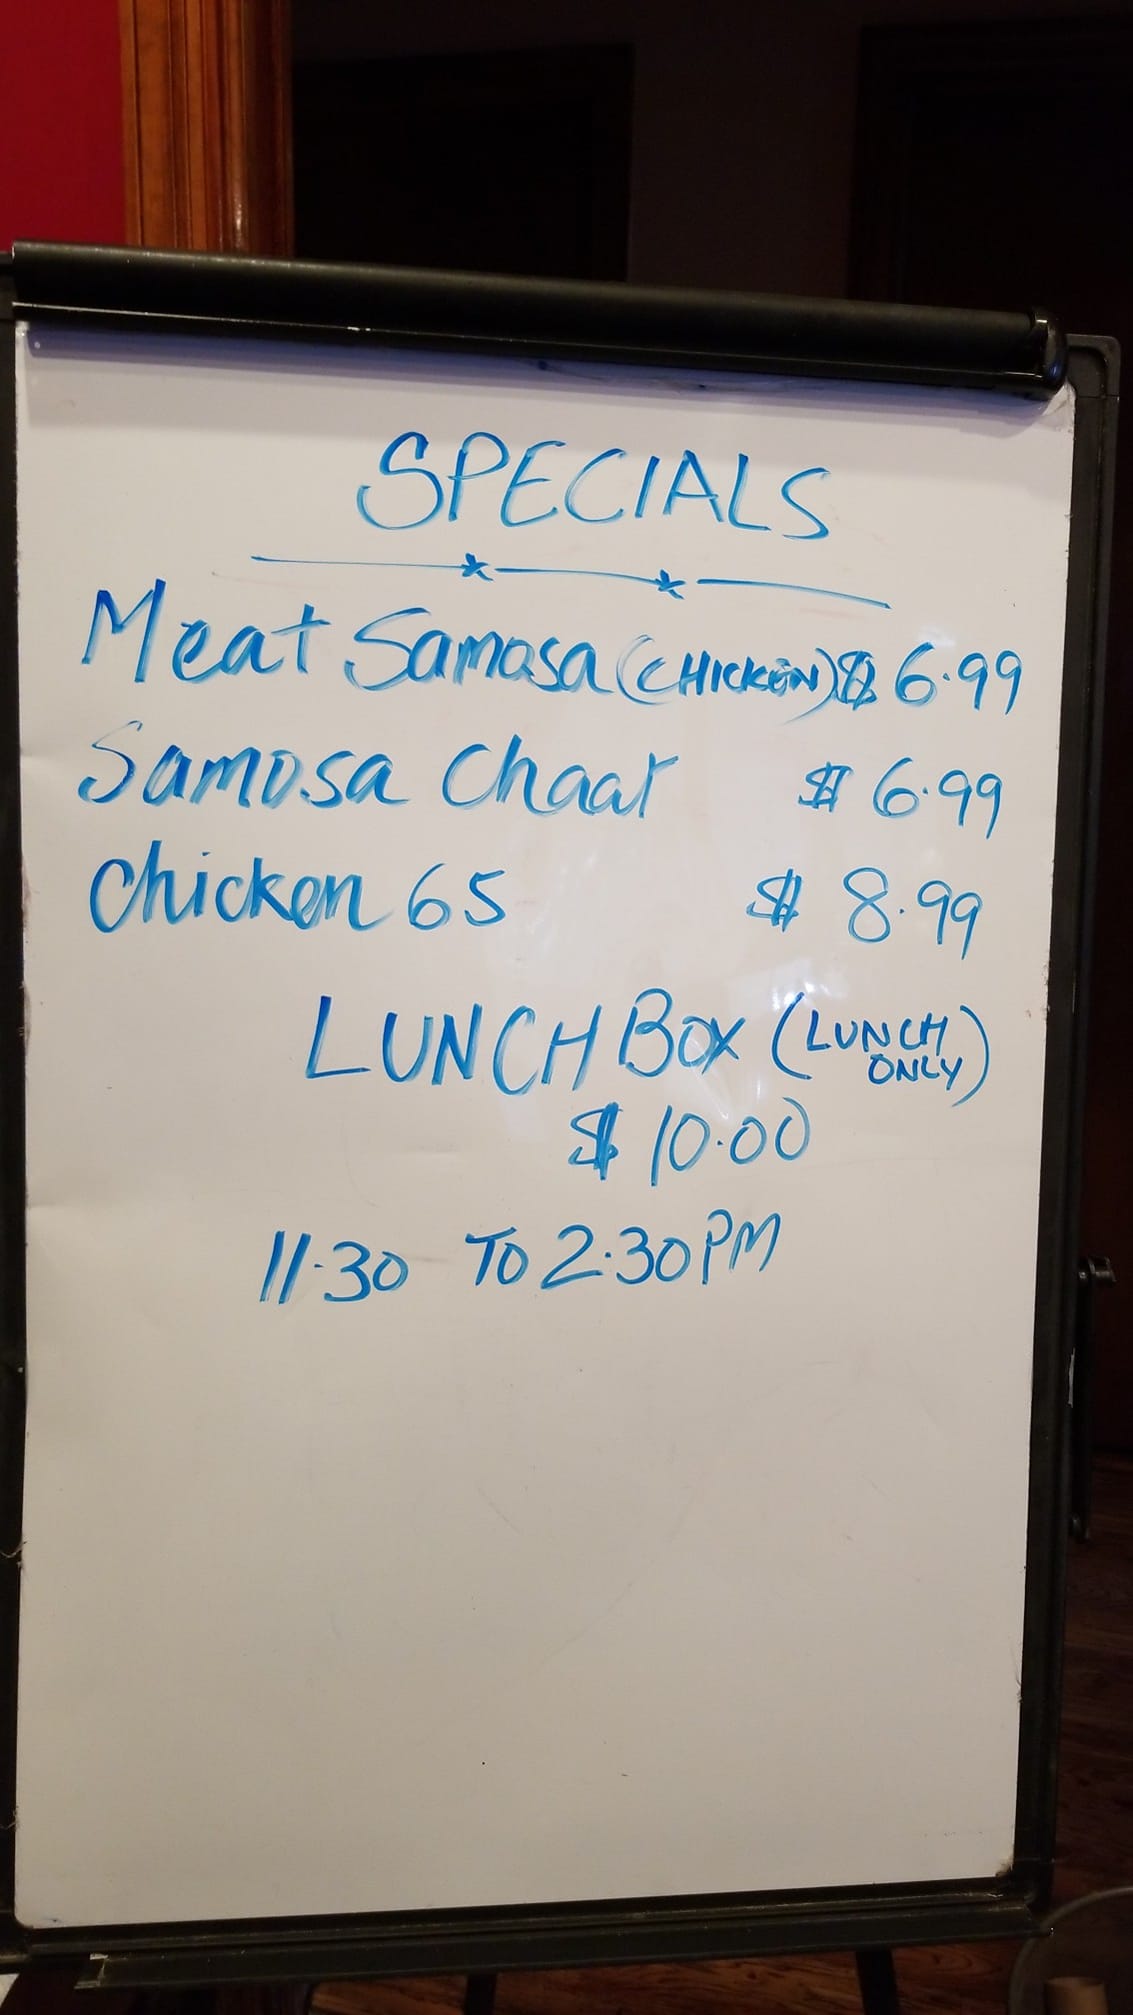 SPECIALS
Meat Samosa (CHICKEN) $ 6.99
Samosa Chaat $ 6.99
Chicken 65 $ 8.99
LUNCH BOX (LUNCH ONLY)
$ 10.00
11.30 TO 2.30PM